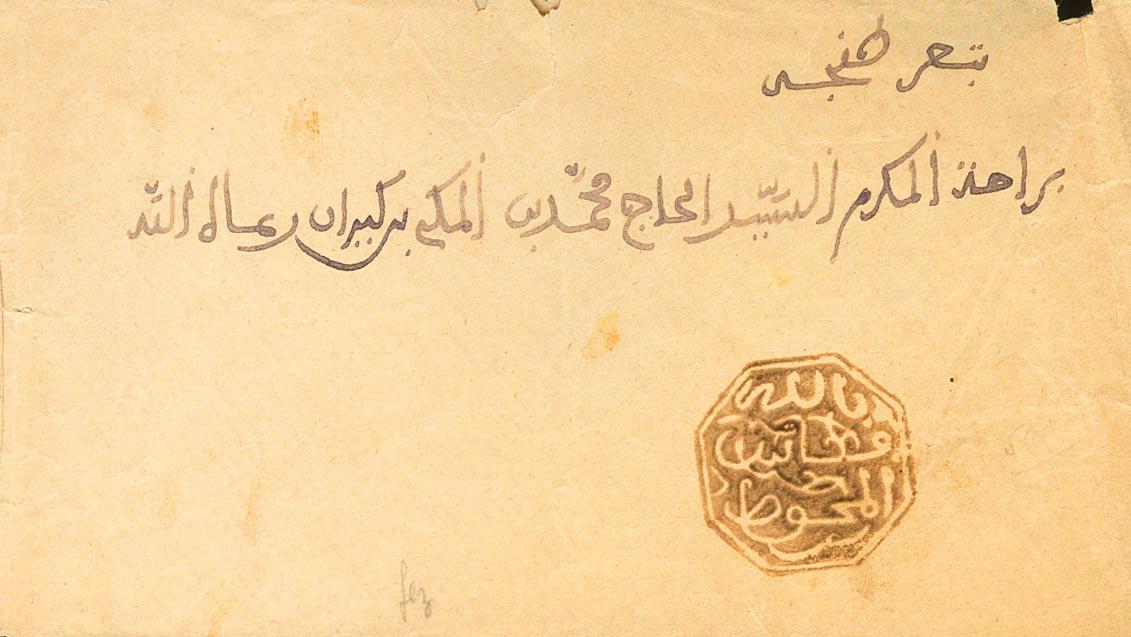 بثغر طنجة
براحة المكرم السيد الحاج محمد بن المكي بن كيران رعاه الله
بالله
فاس
المحوط
fez